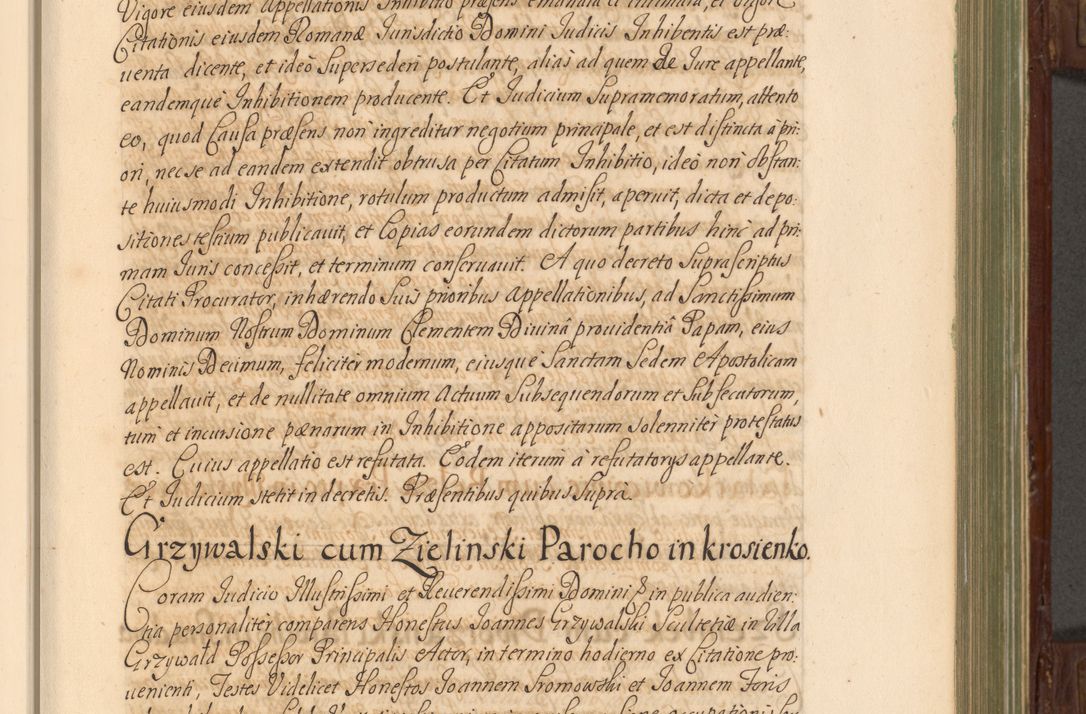 Vigore eiusdem Appellationis Inhibitio præsens emanata et intimata, et vigore
Citationis eiusdem Romanæ Iurisdictio Domini Iudicis Inhibentis est præ:
uenta dicente, et ideò Supersederi postulante, alias ad quem de Iure appellante,
eandemque Inhibitionem producente. Et Iudicium Supramemoratum, attento
eo, quod Causa præsens non ingreditur negotium principale, et est distincta à pri:
ori, nec se ad eandem extendit obtrusa per Citatum Inhibitio, ideò non obstan:
te huiusmodi Inhibitione, rotulum productum admisit, aperuit, dicta et depo:
sitiones testium publicauit, et Copias eorundem dictorum partibus hinc ad pri:
mam Iuris concessit, et terminum conseruauit. A quo decreto Suprascriptus
Citati Procurator, inhærendo Suis prioribus Appellationibus, ad Sanctissimum
Dominum Nostrum Dominum Clementem Diuinâ prouidentiâ Papam, eius
Nominis Decimum, feliciter modernum, eiusque Sanctam Sedem Apostolicam
appellauit, et de nullitate omnium Actuum Subsequendorum et Subsecutorum,
tum et incursione pænarum in Inhibitione appositarum solenniter protestatus
est. Cuius appellatio est refutata. Eodem iterum à refutatorys appellante.
Et Iudicium stetit in decretis. Præsentibus quibus Suprà.
Grzywalski cum Zielinski Parocho in krosienko.
Coram Iudicio Illustrissimi et Reuerendissimi Domini in publica audien:
tia personaliter comparens Honestus Ioannes Grzywalski Scultetiæ in Villa
Grzywałd Possessor Principalis Actor, in termino hodierno ex Citatione pro:
uenienti, Testes Videlicet Honestos Ioannem Sromowski et Ioannem Foris